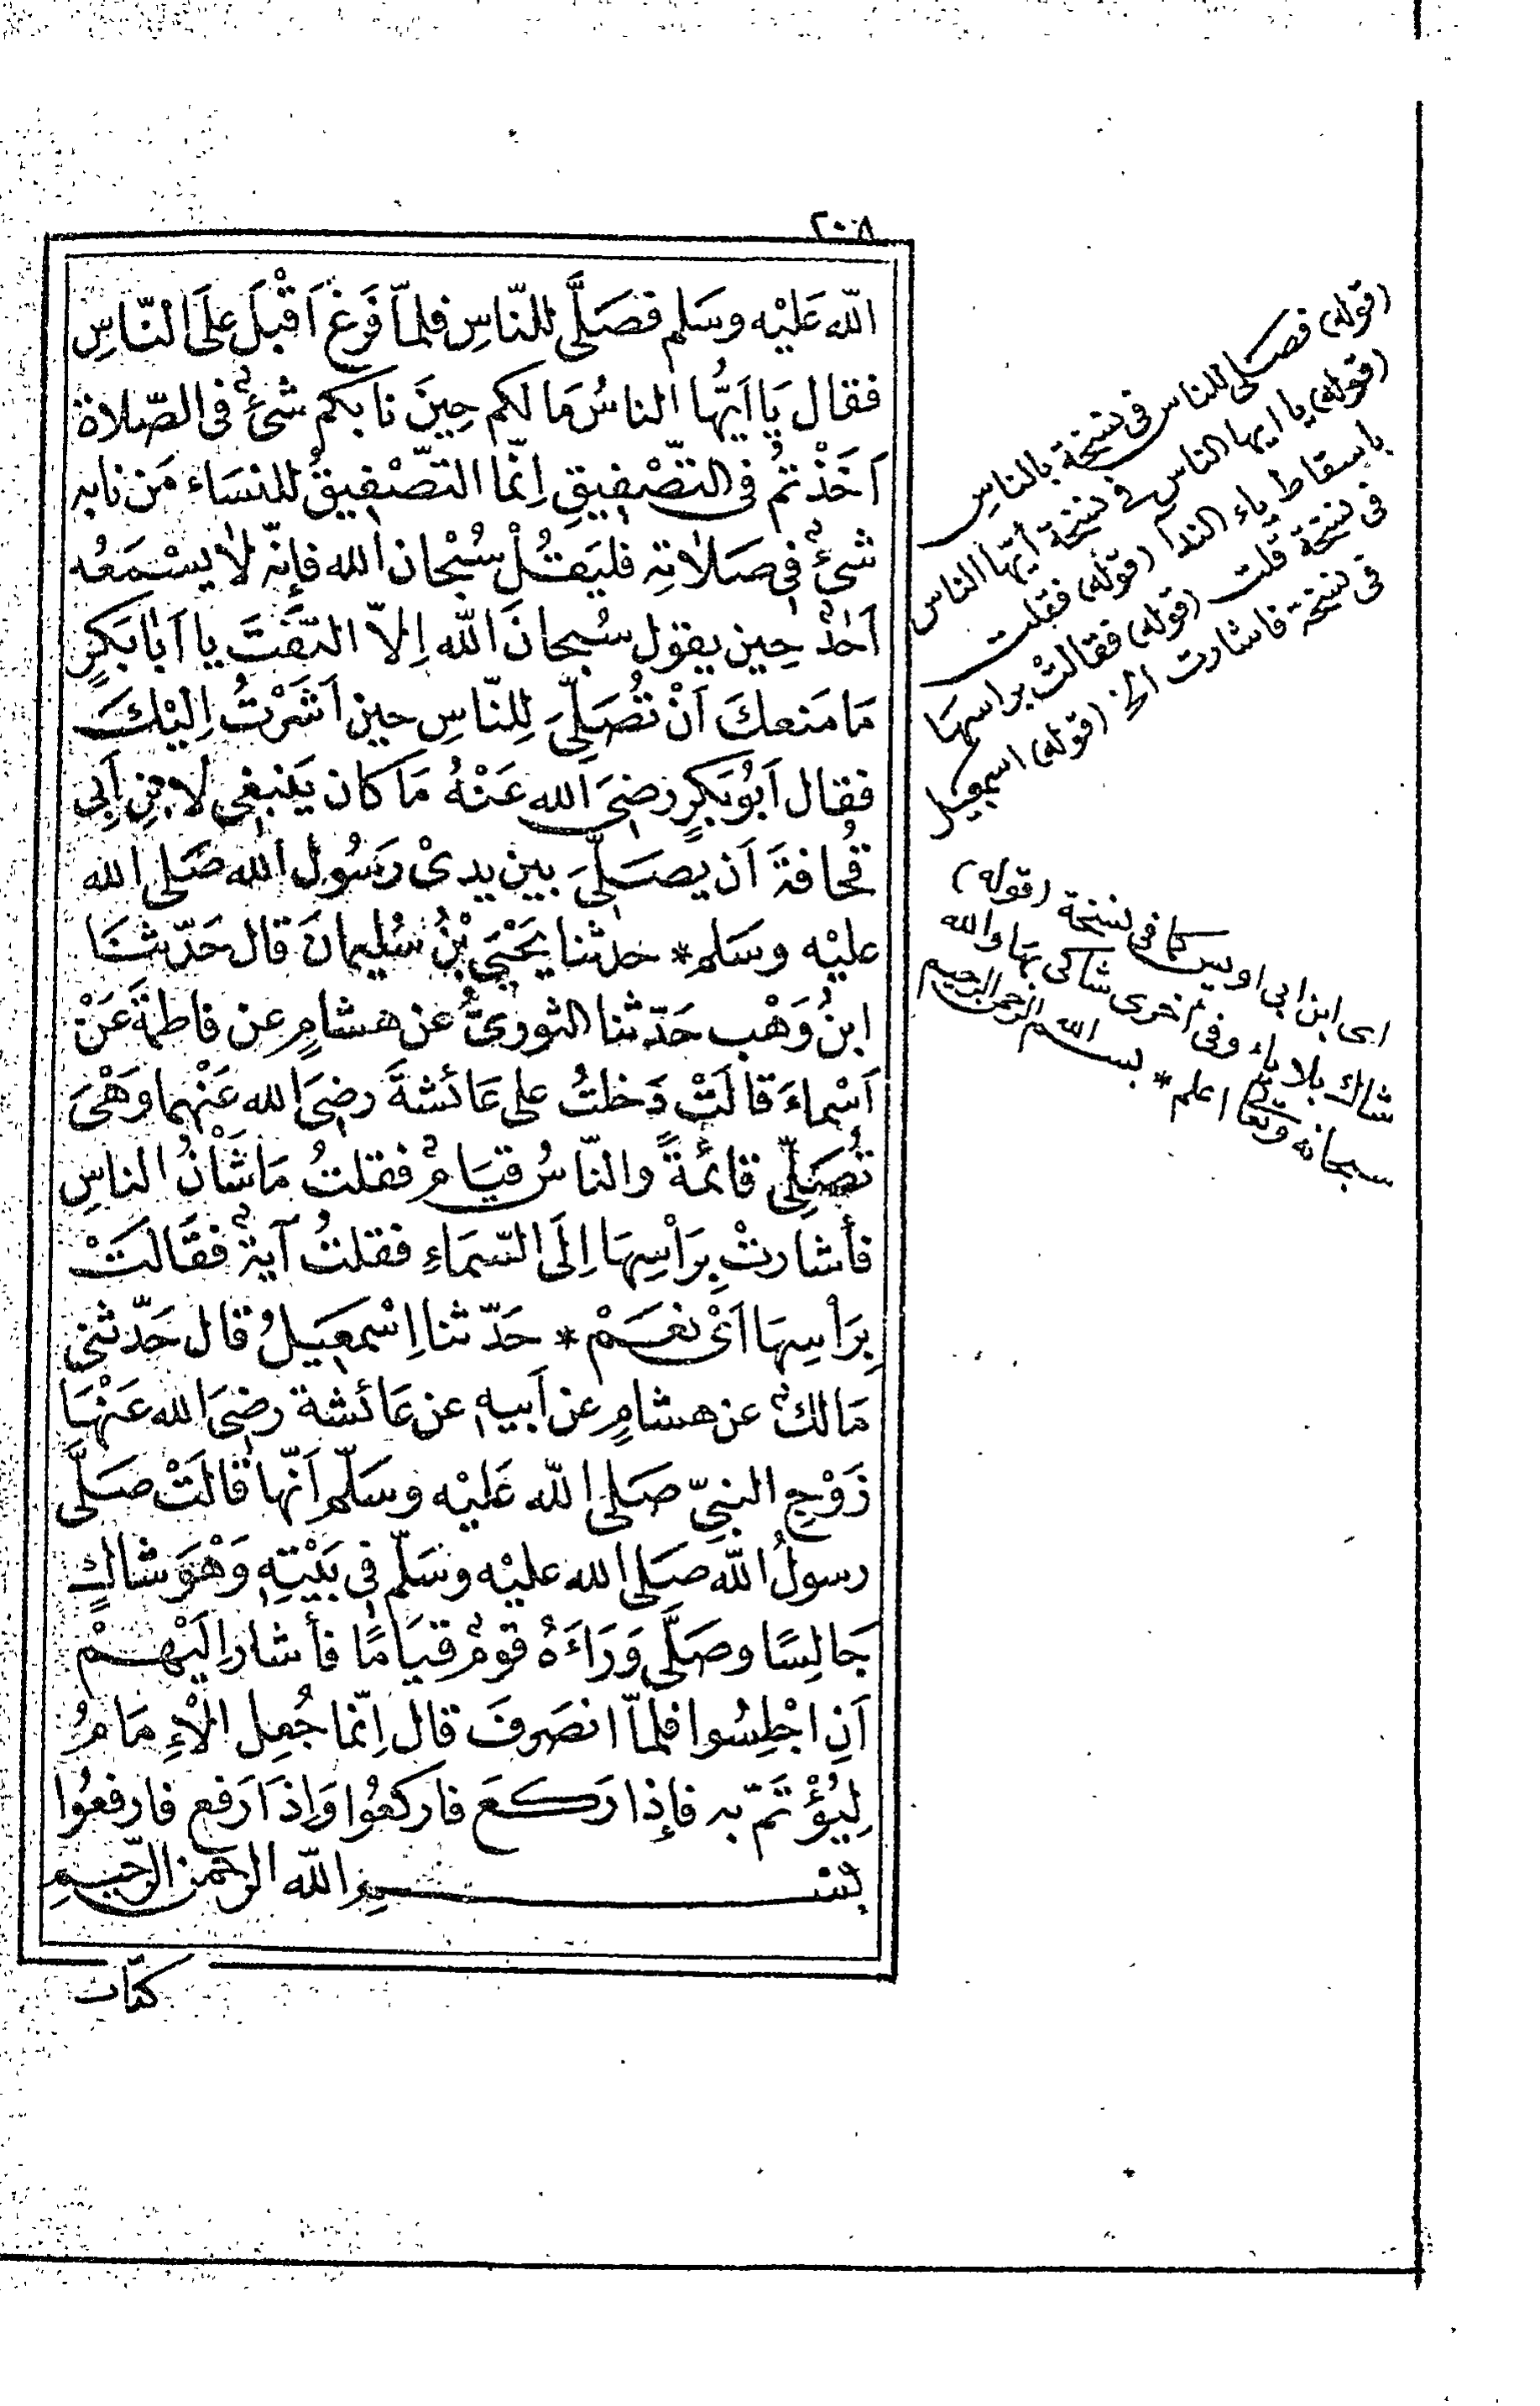 ٢٠٨
الله عَلَيْه وسَلم فصَلَّى للنّاسِ فلمّا فَرَغ اَقْبَلَ عَلَى النّاسِ
فقال يَا اَيُّها الناسُ مَا لكم حِينَ نابكم شئٌ فى الصّلاة
اَخَذْتمُ فى التّصْفِيقِ اِنّما التّصْفِيقُ للنسَاء مَن نابه
شئٌ فى صَلاتِهِ فليَقُلْ سُبْحان الله فإنّه لا يسْمَعُه
اَحَدٌ حِين يقول سُبحانَ الله اِلاّ التَفَتَ يا اَبا بَكرٍ
مَا مَنعكَ اَنْ تُصَلِّىَ لِلنّاسِ حين اَشَرْتُ اِلَيْكَ
فقال اَبُو بَكرٍ رضىَ الله عَنْهُ مَا كان يَنبغى لابنِ اَبى
قُحافةَ اَن يصَلّىَ بين يدىْ رَسُول الله صَلى الله
عليْه وسَلم * حدثنا يَحْيَى بْنُ سُليمانَ قال حَدّثنَا
ابنُ وَهْب حَدّثنا الثورىُّ عن هشامٍ عن فاطمةَ عَنْ
اَسْماءَ قالَتْ دَخلتُ على عَائشةَ رضىَ الله عَنْهما وَهْىَ
تُصَلِّى قائمةً والنّاسُ قيَامٌ فقلتُ مَا شَأْنُ الناسِ
فأشارتْ بِرَأْسِهَا اِلَى السّمَاءِ فقلتُ آيةٌ فقَالَتْ
بِرَأْسِهَا اَىْ نعَمْ * حَدّثنا اِسْمعِيلُ قال حَدّثنى
مَالكٌ عن هشامٍ عن اَبيهِ عن عَائشة رضىَ الله عَنْهَا
زَوْجِ النبىّ صَلى الله عَليْه وسَلّم اَنّها قَالَتْ صَلَّى
رسولُ الله صَلى الله عليْه وسَلّم فى بَيْتِهِ وَهْوَ شاكٍ
جَالِسًا وصَلَّى وَرَاءَهُ قومٌ قيَامًا فأشار اِلَيْهِمْ
اَنِ اجْلِسُوا فلمّا انصَرفَ قال اِنّما جُعِل الْإِمَامُ
لِيُؤْتَمّ به فإذا رَكَعَ فاركعُوا وَاِذَا رَفع فارفعُوا
بسْمِ الله الرحمن الرّحيمِ
كتاب
(قوله) فصَلى للناس فى نسخة بالناس
(قوله) يا ايها الناس فى نسخة أيّها الناس
باسقاط ياء الندا (قوله) فقلت
فى نسخة قلت (قوله) فقالتْ براسهَا
فى نسخة فاشارت الخ (قوله) اسمعيل
اى ابن ابى اويس كما فى نسخة (قوله)
شاك بلا ياء وفى اخرى شاكى بها والله
سبحانه وتعا اعلم * بسم الله الرحمن الرحيم